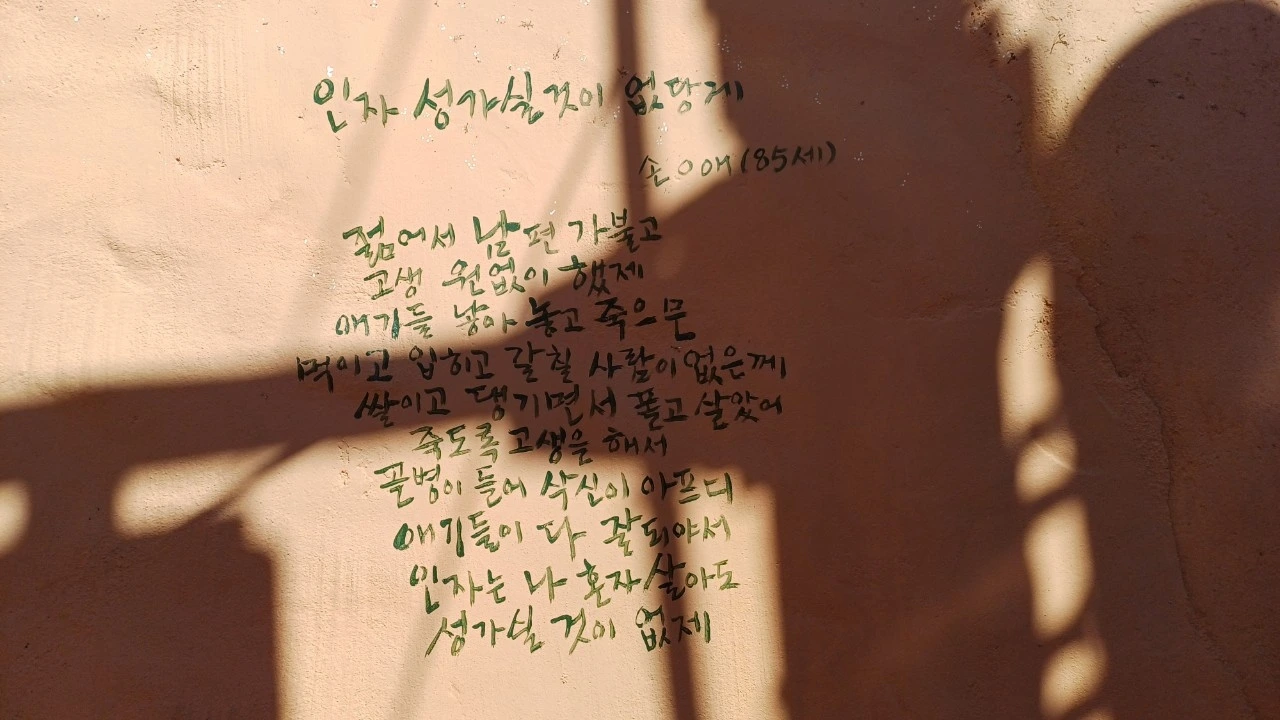 인자 성가실것이 없당게
손ㅇ애(85세)
젊어서 남편 가불고
고생 원없이 했제
애기들 낳아 놓고 죽으문
먹이고 입히고 갈칠 사람이 없은께
쌀이고 댕기면서 폴고 살았어
죽도록 고생을 해서
골병이 들어 삭신이 아프디
애기들이 다 잘되야서
인자는 나 혼자 살아도
성가실 것이 없제